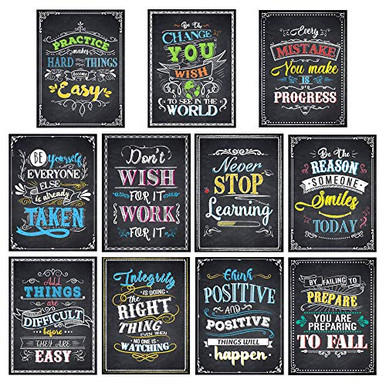 PRACTICE
makes
HARD THINGS
become
Easy
Be the
CHANGE
YOU
WISH
TO SEE IN THE
WORLD
Every
MISTAKE
You make
IS
PROGRESS
BE Yourself
EVERYONE
ELSE
is already
TAKEN
Don't
WISH
FOR IT
WORK
FOR IT
Never
STOP
Learning
Be the
REASON
SOMEONE
Smiles
TODAY
All
THINGS
ARE
DIFFICULT
before
THEY ARE
EASY
Integrity
IS DOING
THE
RIGHT
THING
EVEN
WHEN
NO ONE
IS
WATCHING
Think
POSITIVE
AND
POSITIVE
THINGS WILL
happen
BY FAILING TO
PREPARE
YOU ARE
PREPARING
TO FALL